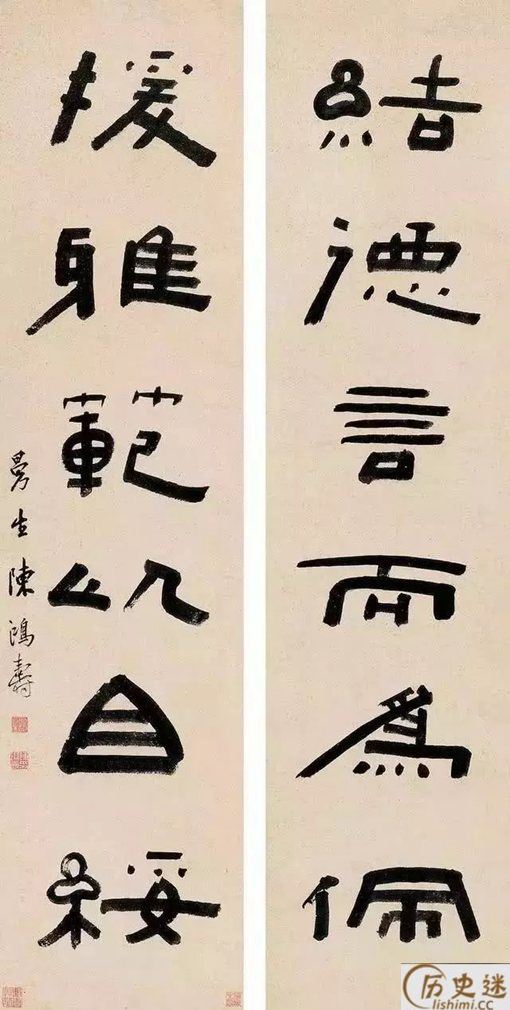 結德言而爲佩
援雅範以自綏
曼生陳鴻壽
历史迷
lishimi.cc